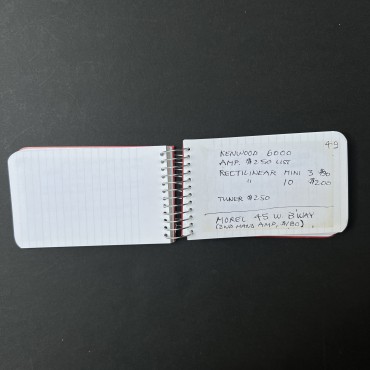 49
KENWOOD 6000
AMP. $250 LIST
RECTILINEAR MINI 3 $90
" 10 $200
TUNER $250
MOREL 45 W. B'WAY
(2ND HAND AMP, $180)